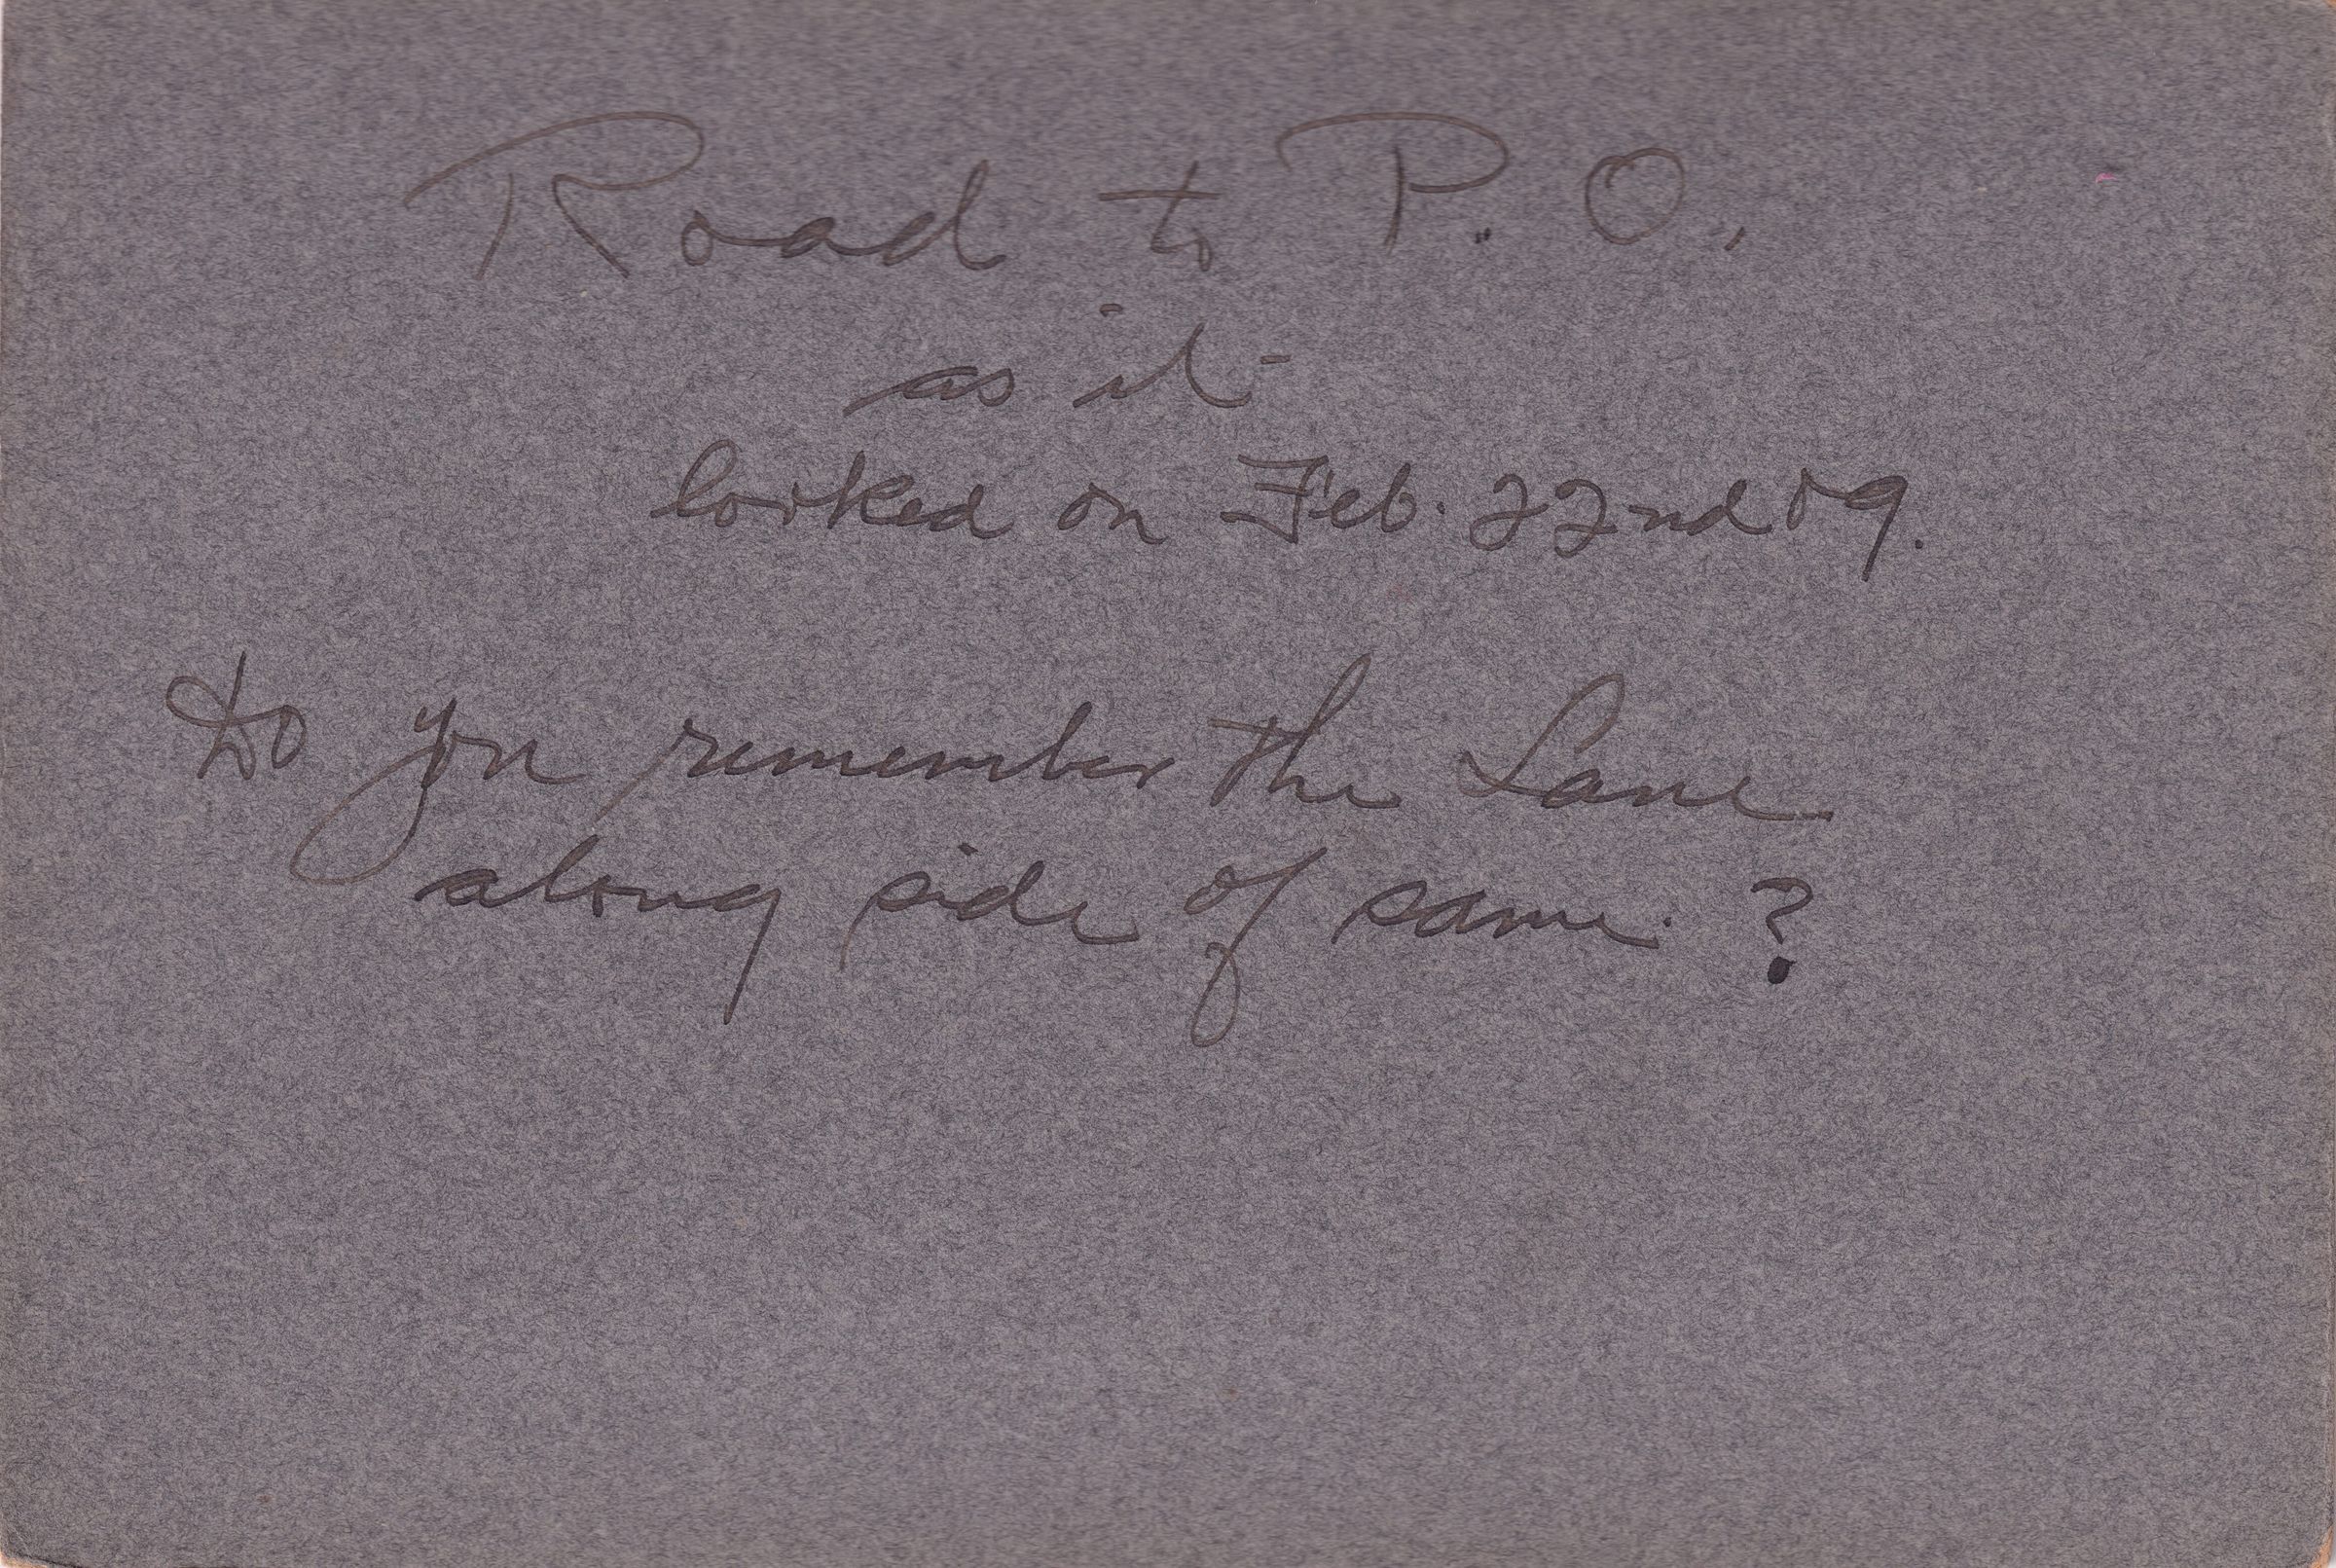 Road to P. O.,
as it
looked on Feb. 22nd 09.
Do you remember the Lane
along side of same. ?